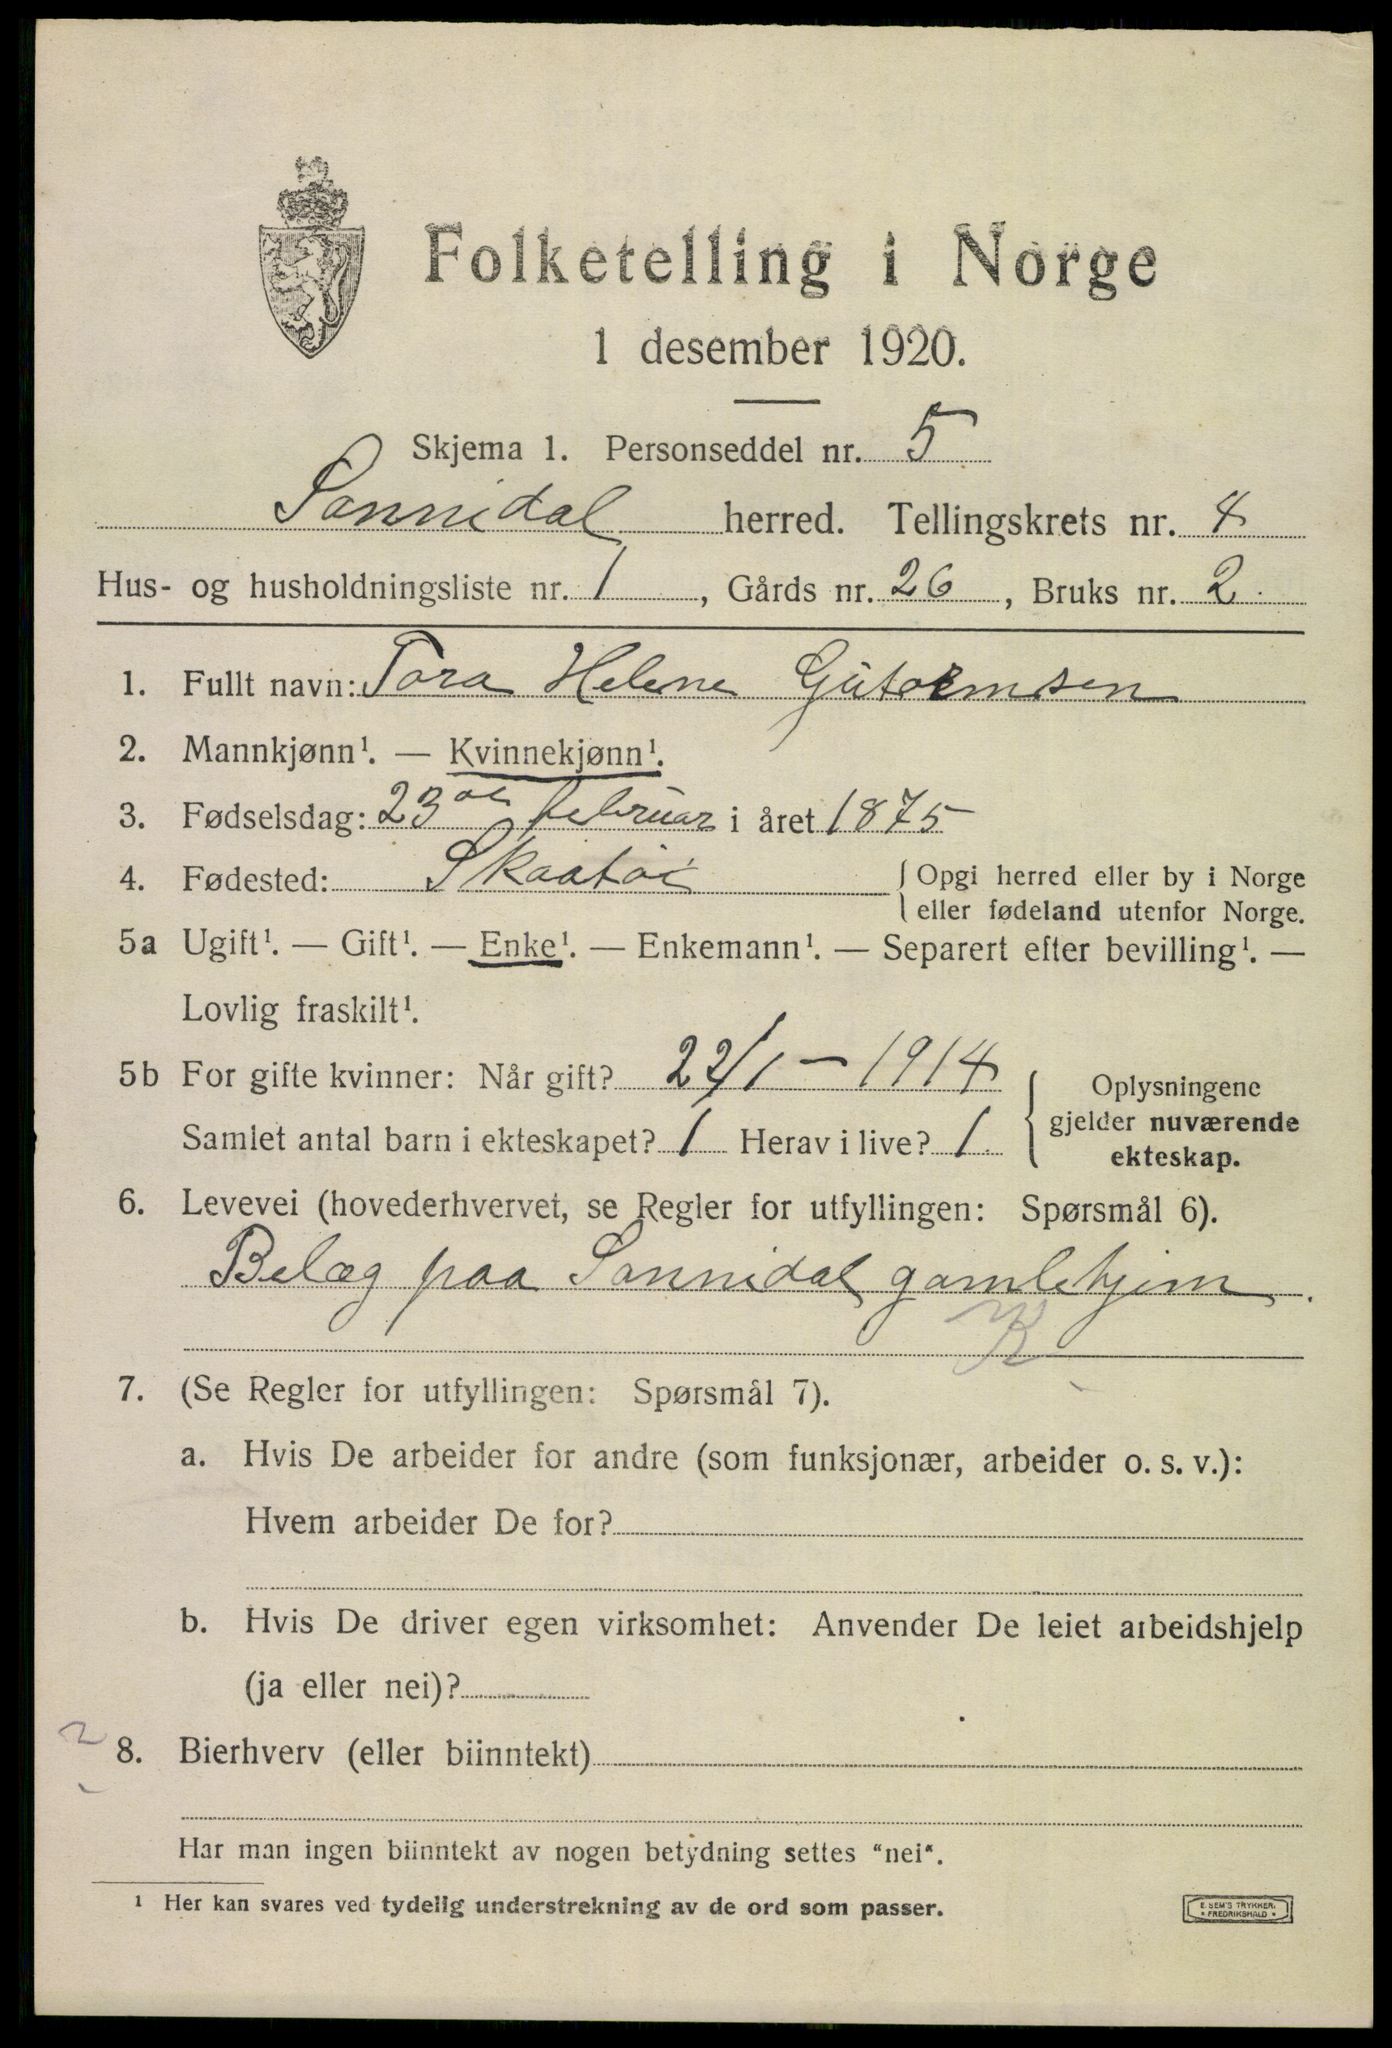 Folketelling i Norge
1 desember 1920.
Skjema 1. Personseddel nr. 5
Sannidal herred. Tellingskrets nr. 4
Hus- og husholdningsliste nr. 1, Gårds nr. 26, Bruks nr. 2.
1. Fullt navn: Tora Helene Gutormsen
2. Mannkjønn¹. — Kvinnekjønn¹.
3. Fødselsdag: 23de februar i året 1875
4. Fødested: Skaatøi {Opgi herred eller by i Norge
eller fødeland utenfor Norge.
5a Ugift¹. — Gift¹. — Enke¹. — Enkemann¹. — Separert efter bevilling¹. —
Lovlig fraskilt¹.
5b For gifte kvinner: Når gift? 22/1 - 1914 { Oplysningene
Samlet antal barn i ekteskapet? 1 Herav i live? 1. gjelder nuværende
ekteskap.
6. Levevei (hovederhvervet, se Regler for utfyllingen: Spørsmål 6).
Belæg paa Sannidal gamlehjem.
7. (Se Regler for utfyllingen: Spørsmål 7).
a. Hvis De arbeider for andre (som funksjonær, arbeider o. s. v.):
Hvem arbeider De for?
b. Hvis De driver egen virksomhet: Anvender De leiet arbeidshjelp
(ja eller nei)?
2
8. Bierhverv (eller biinntekt)
Har man ingen biinntekt av nogen betydning settes "nei".
¹ Her kan svares ved tydelig understrekning av de ord som passer.
E. SEM'S TRYKKERI
* FREDRIKSHALD *